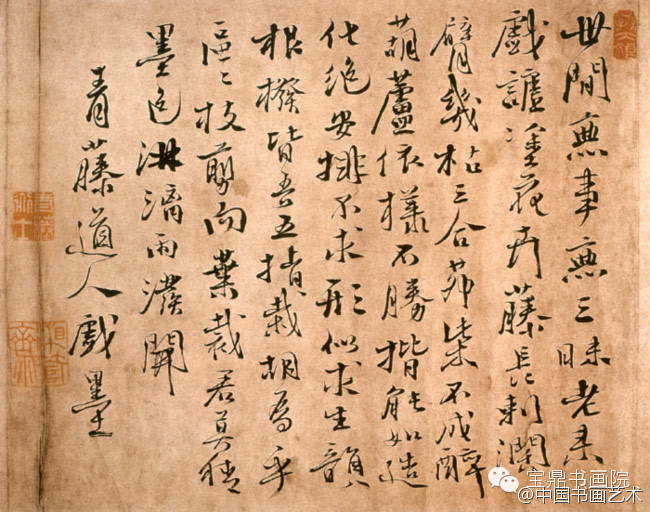 世間無事無三昧老来
戲謔塗花卉藤長刺濶
臂幾枯三合茅柴不成醉
葫蘆依樣不勝揩能如造
化絶安排不求形似求生韻
根撥皆吾五指栽胡為乎
區〻枝剪向葉裁君莫猜
墨色淋漓雨潑開
青藤道人戲墨
宝鼎书画院
@中国书画艺术